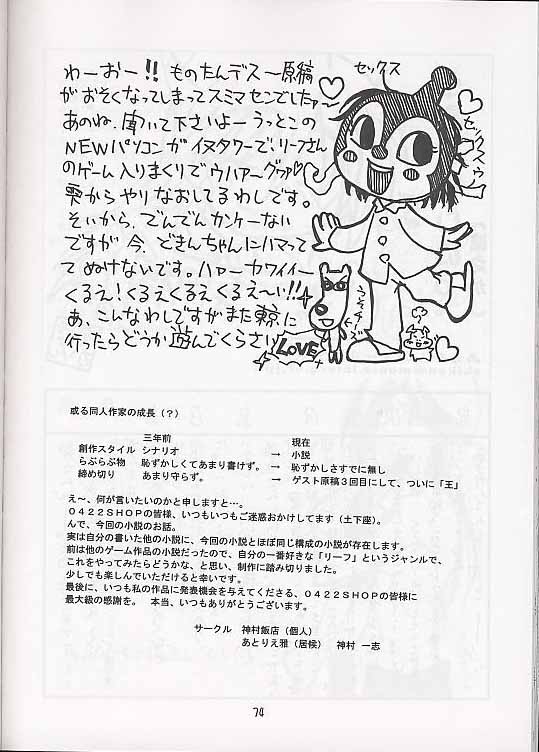 わーおー!! ものたんデス〜原稿
がおそくなってしまってスミマセンでしたァ〜
あのね、聞いて下さいよー うっとこの
NEWパソコンが イヌタワーで、リーフさん
のゲーム入りまくりで ウハァ〜グワァ♡
雫からやりなおしてるわしです。
そいから、でんでんカンケーない
ですが 今、どきんちゃんにハマって
て ぬけないです。ハァーカワイイー
くるえ!くるえくるえ くるえ〜い!!
あ、こんなわしですがまた東京に
行ったらどうか遊んでくらさい
セックス
LOVE
或る同人作家の成長(?)
三年前 現在
創作スタイル シナリオ → 小説
らぶらぶ物 恥ずかしくてあまり書けず。 → 恥ずかしさすでに無し
締め切り あまり守らず。 → ゲスト原稿3回目にして、ついに「王」
え〜、何が言いたいのかと申しますと…。
0422SHOPの皆様、いつもいつもご迷惑おかけしてます(土下座)。
んで、今回の小説のお話。
実は自分の書いた他の小説に、今回の小説とほぼ同じ構成の小説が存在します。
前は他のゲーム作品の小説だったので、自分の一番好きな「リーフ」というジャンルで、
これをやってみたらどうかな、と思い、制作に踏み切りました。
少しでも楽しんでいただけると幸いです。
最後に、いつも私の作品に発表機会を与えてくださる、0422SHOPの皆様に
最大級の感謝を。 本当、いつもありがとうございます。
サークル 神村飯店(個人)
あとりえ雅(居候) 神村 一志
74